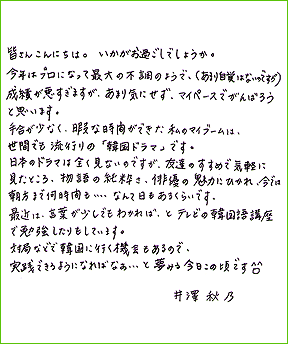 皆さんこんにちは。いかがお過ごしでしょうか。
今年はプロになって最大の不調のようで、(あまり自覚はないのですが)
成績が悪すぎますが、あまり気にせず、マイペースでがんばろう
と思います。
手合が少なく、暇な時間ができた私のマイブームは、
世間でも流行りの「韓国ドラマ」です。
日本のドラマは全く見ないのですが、友達のすすめで気軽に
見たところ、物語の純粋さ、俳優の魅力にひかれ、今では
朝方まで何時間も‥‥なんて日もあるくらいです。
最近は、言葉が少しでもわかれば、とテレビの韓国語講座
で勉強したりもしています。
対局などで韓国に行く機会もあるので、
実践できるようになればなぁ…と夢みる今日この頃です^^
井澤秋乃